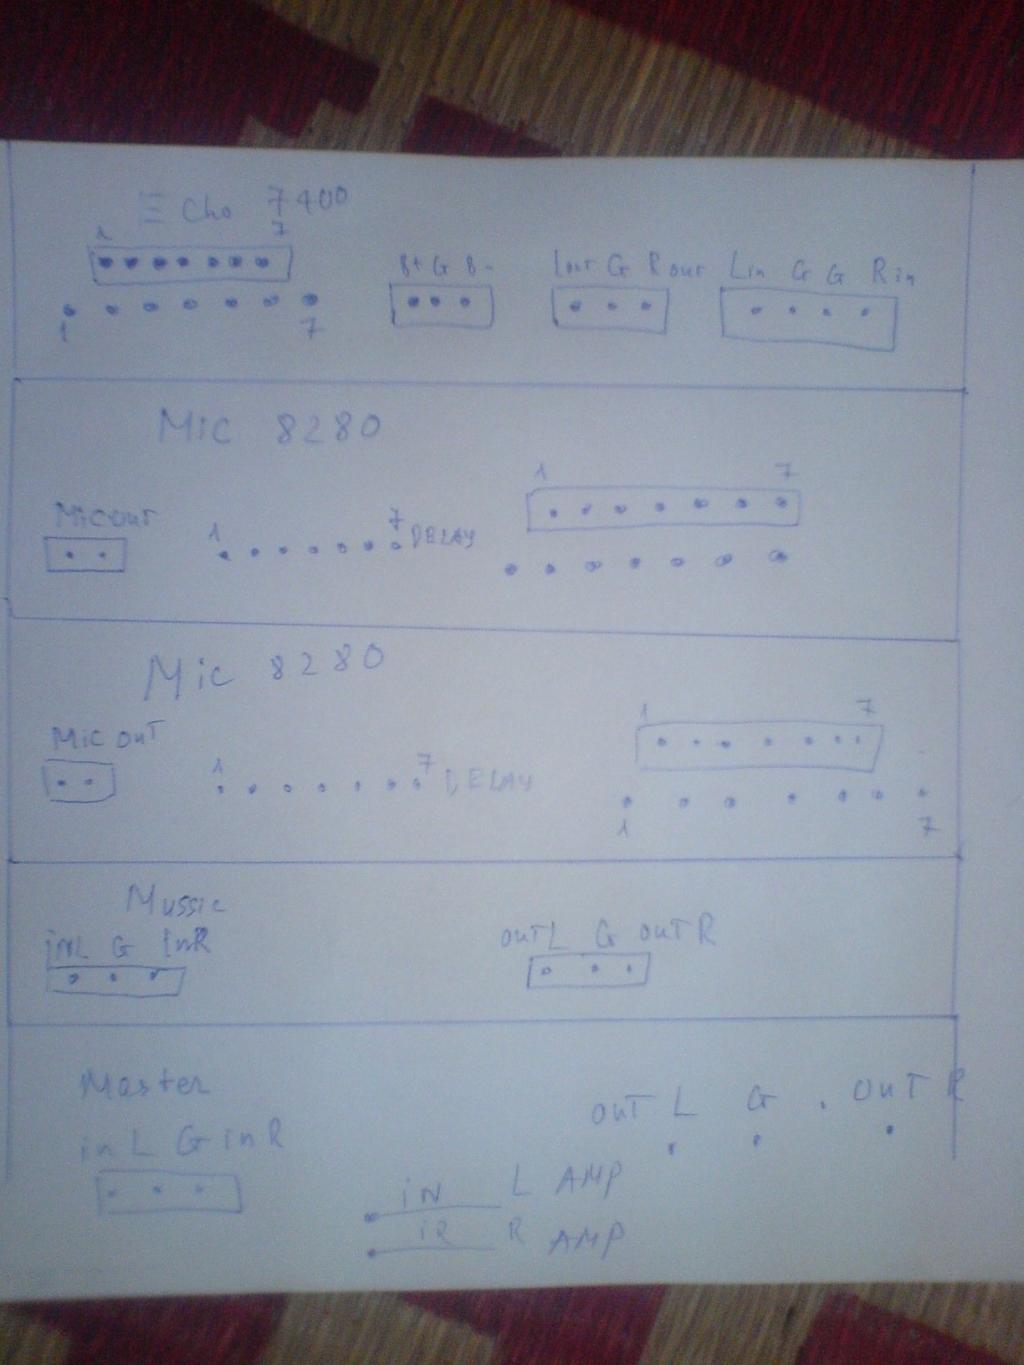 Echo 7400
1 7
B+ G B-
Lout G Rout
Lin G G Rin
1 7
Mic 8280
Micout
1 7 DELAY
1 7
Mic 8280
Mic out
1 7 DELAY
1 7
1 7
Mussic
inL G InR
outL G outR
Master
in L G in R
out L G . out R
iN L AMP
R AMP